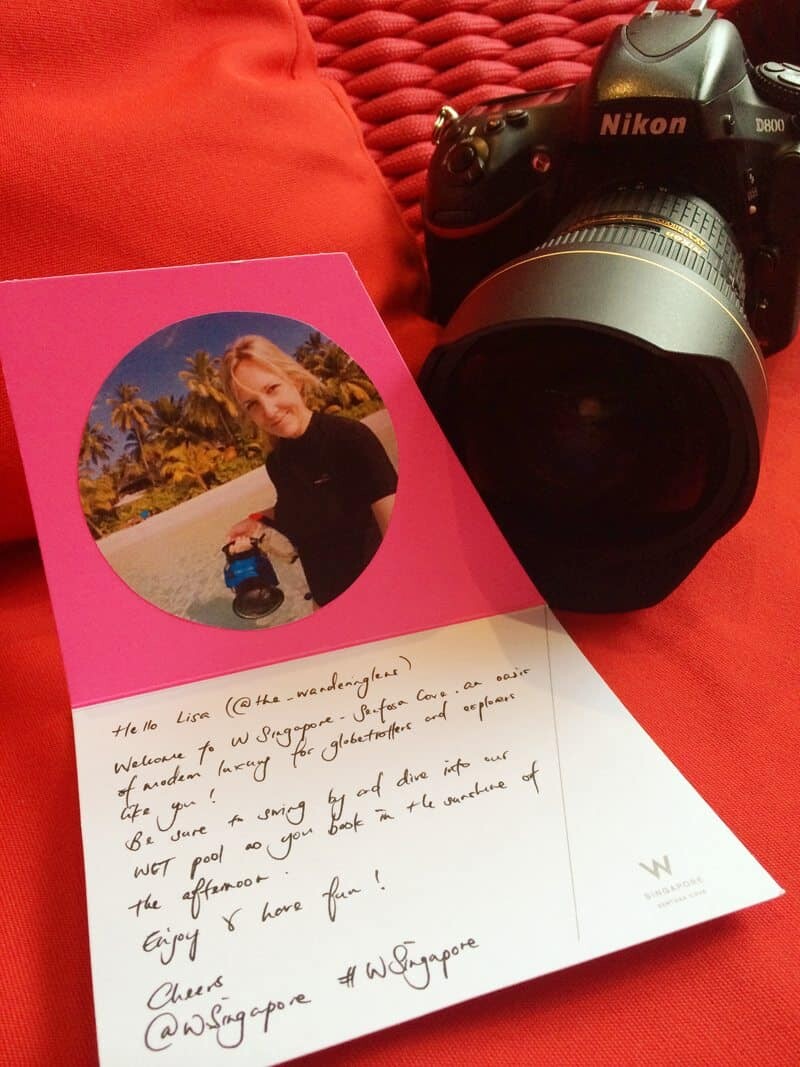 Nikon
D800
Nikon
Hello Lisa (@the_wanderinglens)
Welcome to W Singapore - Sentosa Cove. an oasis
of modern luxury for globetrotters and explorers
like you!
Be sure to swing by ad dive into our
WET pool as you book in the sunshine of
the afternoon.
Enjoy & have fun!
Cheers
@WSingapore #WSingapore
W
SINGAPORE
SENTOSA COVE